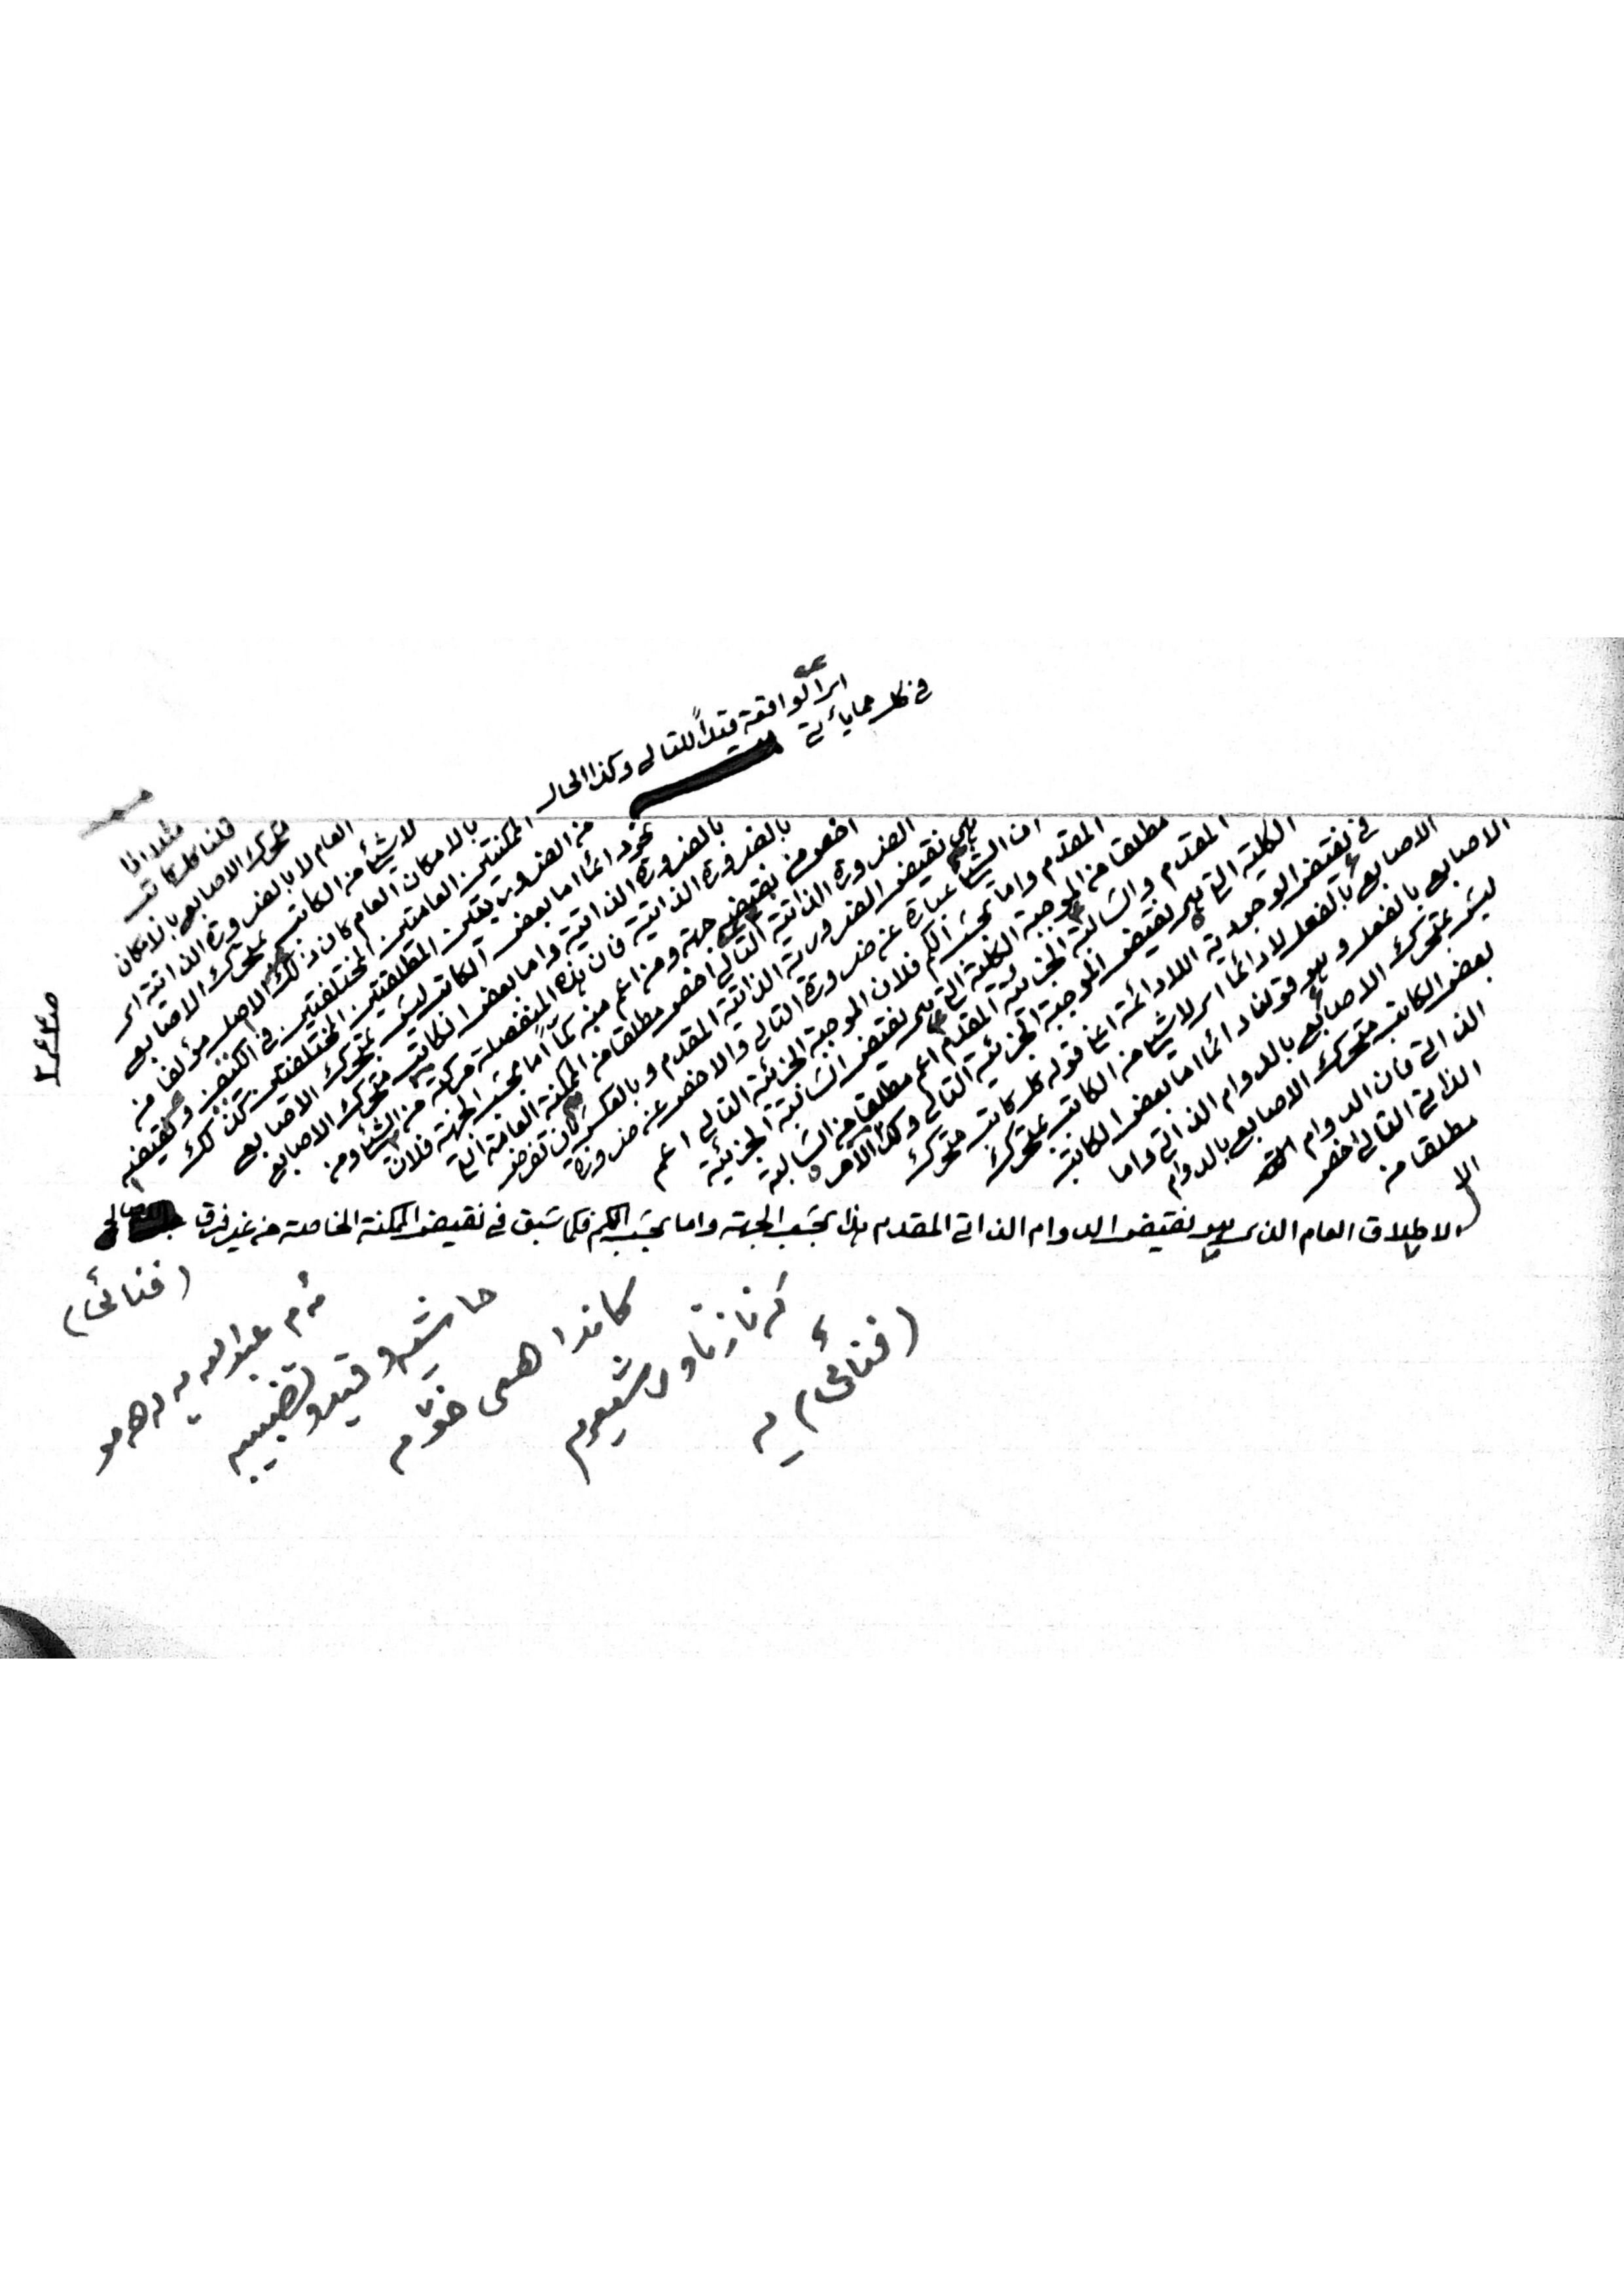 في كل مما يأتي
اى الواقعة قيداً للتالي وكذا الحال
مثلا اذا
قلنا كل كاتب
متحرك الاصابع بالامكان
العام لا بالضرورة الذاتية اى
لا شيئ من الكاتب بمتحرك الاصابع
بالامكان العام كان ذلك الاصل مؤلفا من
الممكنتين العامتين المختلفتين في الكيف ونقيضه
من الضروريتين المطلقتين المختلفتين كذلك
نحو دائما اما بعض الكاتب ليس بمتحرك الاصابع
بالضرورة الذاتية واما بعض الكاتب متحرك الاصابع
بالضرورة الذاتية فان هذه المنفصلة مركبة من الشيئ ومن
اخص من نقيضه جهة ومن اعم منه كمّاً اما بحسب الجهة فلان
الضرورة الذاتية التالي اخص مطلقا من الممكنة العامة التي
هي نقيض الضرورية الذاتية المقدم وبالعكس كان تفرض
ان الشيئ عبارة عن ضرورة التالي والاخص عن ضرورة
المقدم واما بحسب الكم فلان الموجبة الجزئية التالي اعم
مطلقا من الموجبة الكلية التي هي نقيض السالبة الجزئية
المقدم والسالبة الجزئية المقدم اعم مطلقا من السالبة
الكلية التي هي نقيض الموجبة الجزئية التالي وكذا الامر
في نقيض الوجودية اللادائمة اعني قوله كل كاتب متحرك
الاصابع بالفعل لا دائما اى لا شيئ من الكاتب بمتحرك
الاصابع بالفعل وهو قولنا دائما اما بعض الكاتب
ليس بمتحرك الاصابع بالدوام الذاتي واما
بعض الكاتب متحرك الاصابع بالدوام
الذاتي فان الدوام
الذاتي التالي اخص
مطلقا من
الا
الاطلاق العام الذى هو نقيض الدوام الذاتي المقدم هذا بحسب الجهة واما بحسب الكم فكما سبق في نقيض الممكنة الخاصة من غير فرق
(فنائى)
ئه م عبدالله يه له هه مو
حاشيه و قيد و
كاندا هه مى
(فنائى) يه